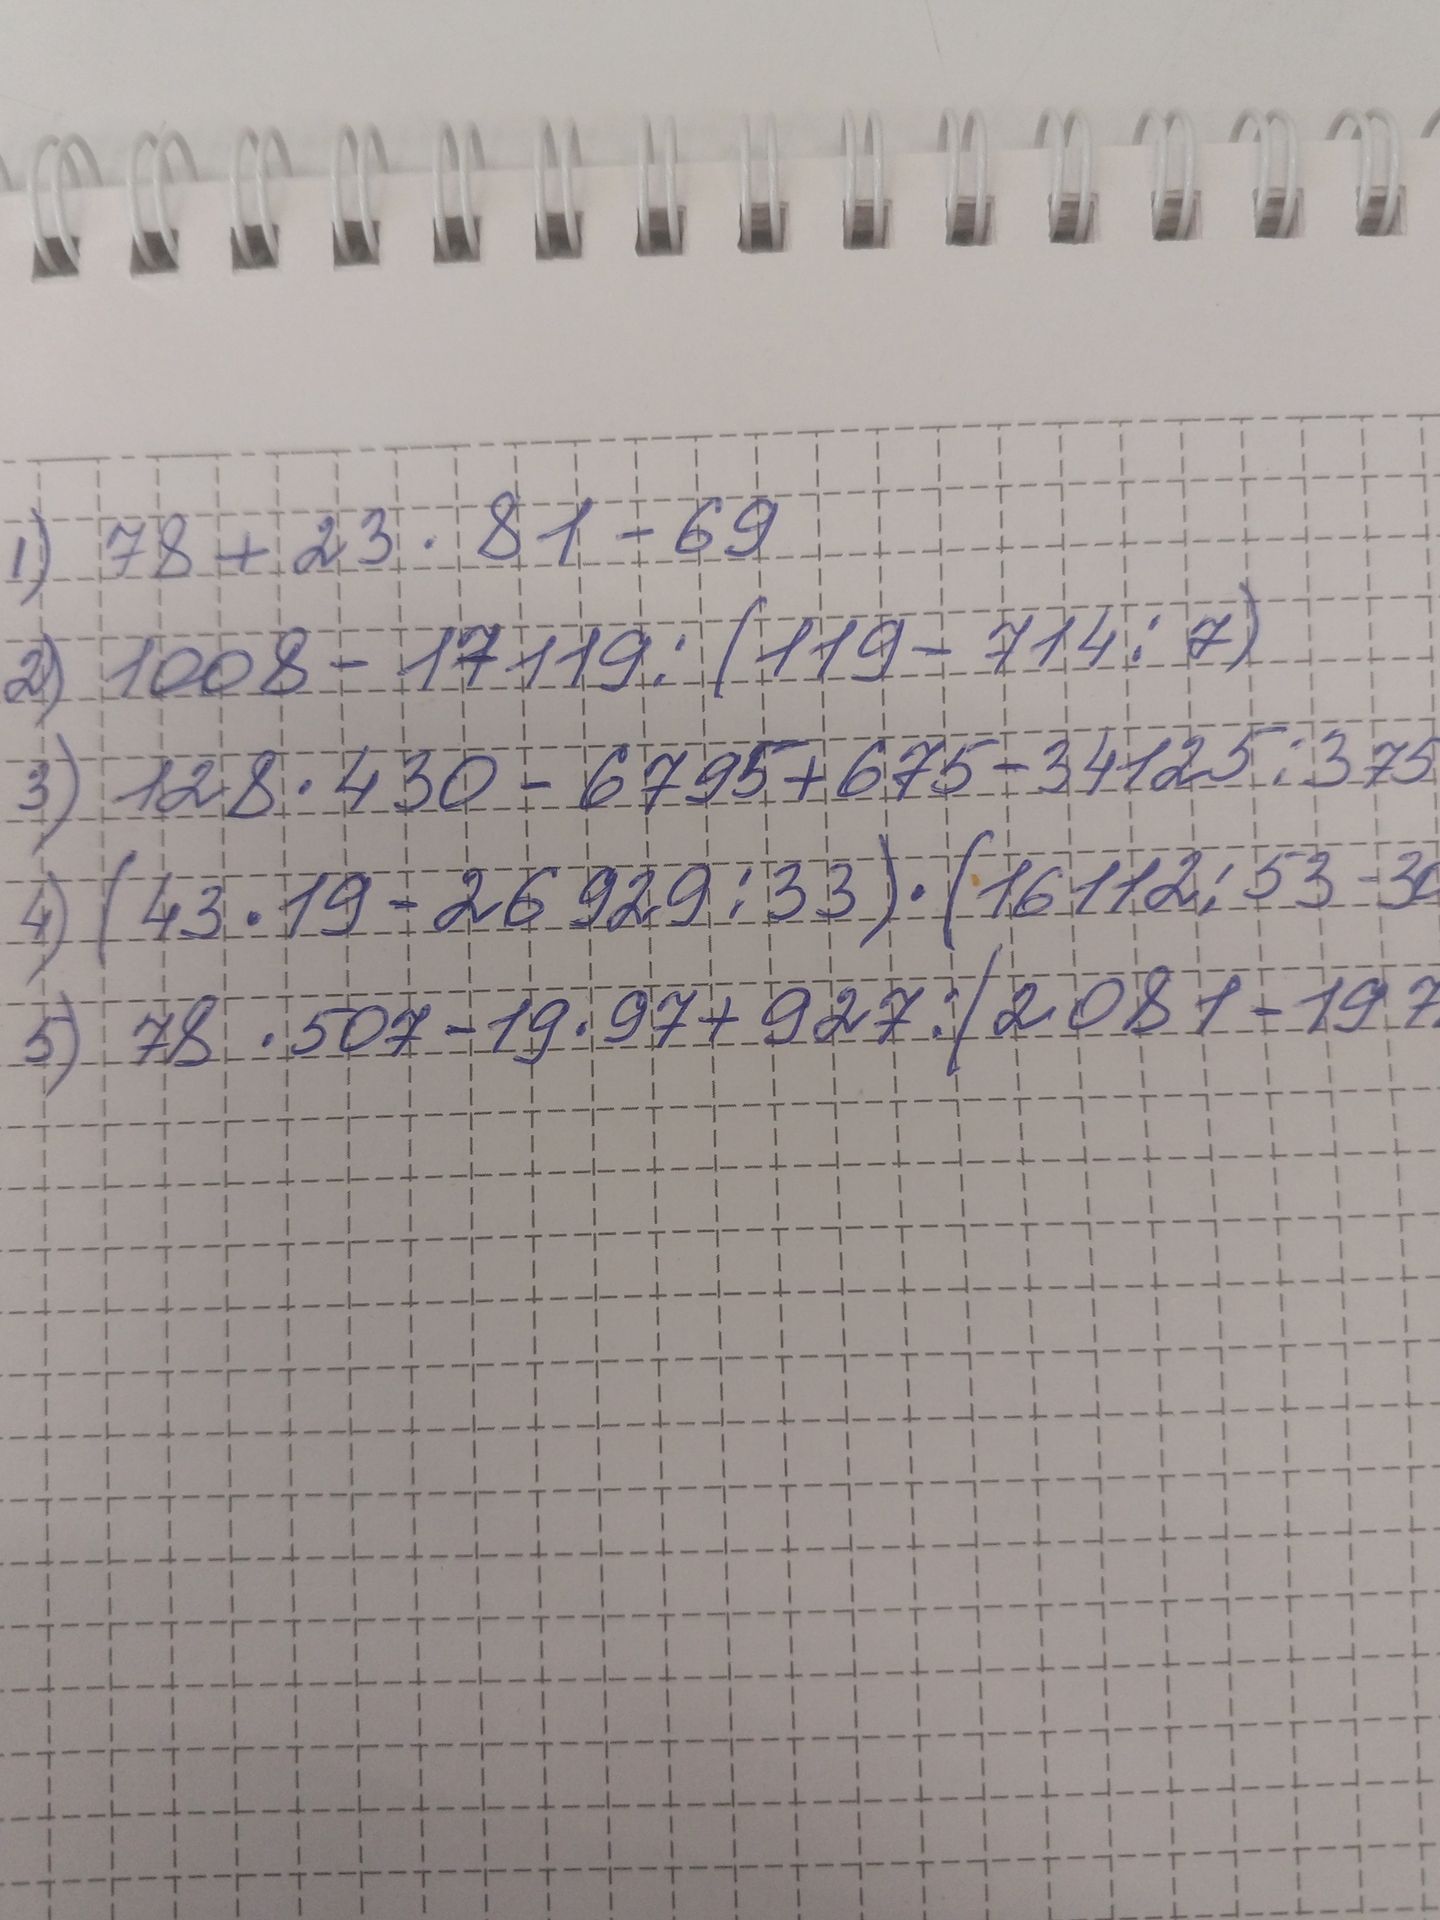 1) 78 + 23 · 81 - 69
2) 1008 - 17119 : (119 - 714 : 7)
3) 128 · 430 - 6795 + 675 - 34125 : 375
4) (43 · 19 - 26929 : 33) · (16112 : 53 - 30
5) 78 · 507 - 19 · 97 + 927 : (2081 - 197